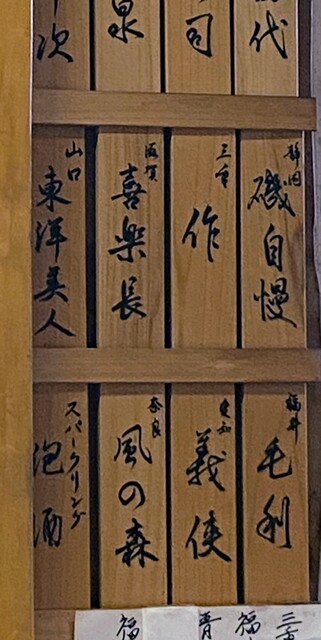 代
司
泉
次
静岡
磯自慢
三重
作
滋賀
喜楽長
山口
東洋美人
福井
毛利
愛知
義侠
奈良
風の森
スパークリング
泡酒
福
福